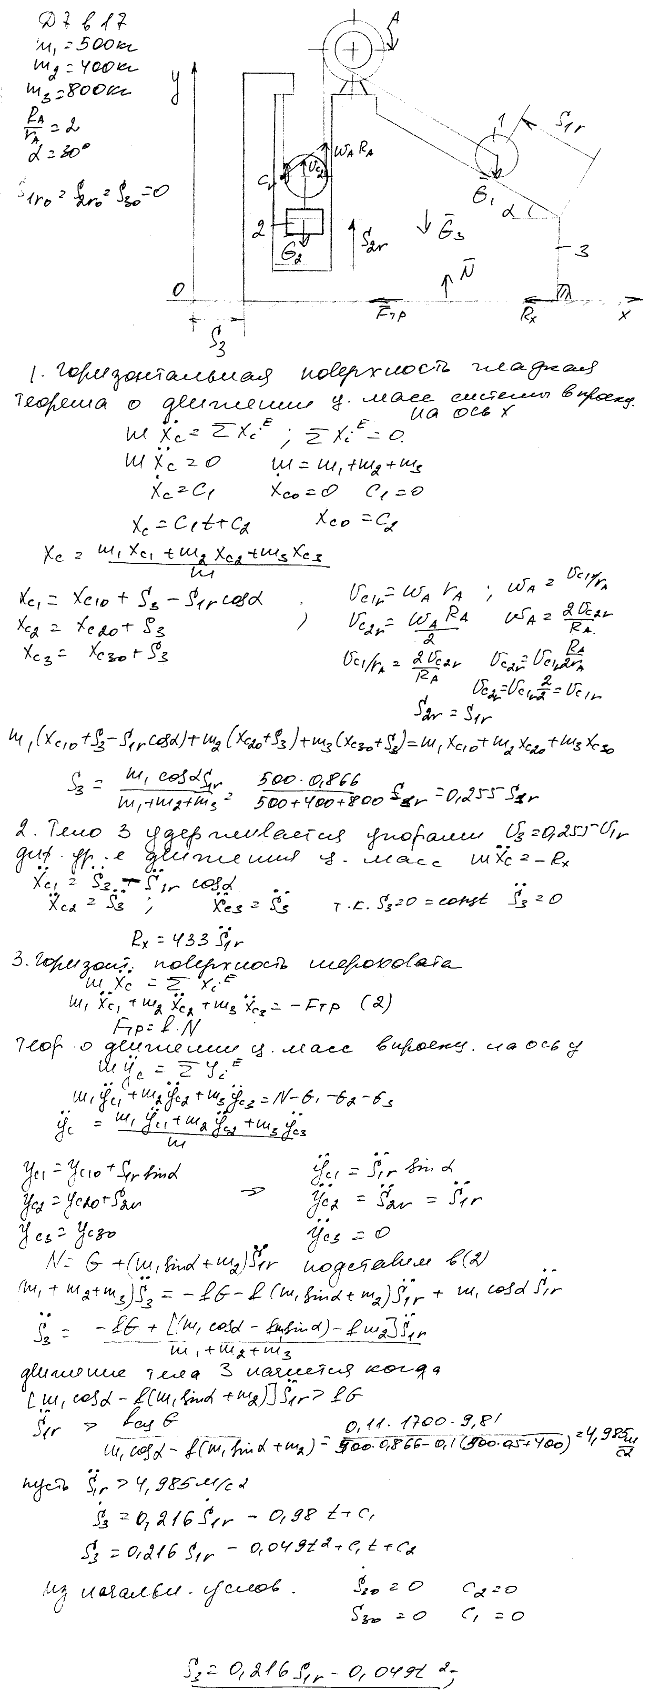 Д7 в 17
m₁ = 500 кг
m₂ = 400 кг
m₃ = 800 кг
R_A/r_A = 2
α = 30°
S₁r₀ = S₂r₀ = S₃₀ = 0
y
A
1
S₁r
ω_A R_A
V_C2r
C_v
Ḡ₁
α
2
G₂
S₂r
Ḡ₃
3
N̄
O
F̄тр
R̄x
x
S₃
1. Горизонтальная поверхность гладкая
Теорема о движении ц. масс системы в проекц.
на ось x
m ẍc = Σ Xᵢᴱ ; Σ Xᵢᴱ = 0.
m ẍc = 0 m = m₁ + m₂ + m₃
ẋc = C₁ ẋc₀ = 0 C₁ = 0
xc = C₁t + C₂ xc₀ = C₂
xc = (m₁xc₁ + m₂xc₂ + m₃xc₃)/m
xc₁ = xc₁₀ + S₃ - S₁r cosα ; Vc₁r = ω_A r_A ; ω_A = Vc₁/r_A
xc₂ = xc₂₀ + S₃ Vc₂r = ω_A R_A/2 ω_A = 2Vc₂r/R_A
xc₃ = xc₃₀ + S₃ Vc₁/r_A = 2Vc₂r/R_A Vc₂r = Vc₁r R_A/2r_A
Vc₂r = Vc₁r 2/2 = Vc₁r
S₂r = S₁r
m₁(xc₁₀ + S₃ - S₁r cosα) + m₂(xc₂₀ + S₃) + m₃(xc₃₀ + S₃) = m₁xc₁₀ + m₂xc₂₀ + m₃xc₃₀
S₃ = m₁ cosα S₁r/(m₁ + m₂ + m₃) = 500·0,866/(500 + 400 + 800) S₁r = 0,255 S₁r
2. Тело 3 удерживается упорами V₃ = 0,255 V₁r
диф. ур-е движения ц. масс m ẍc = - Rx
ẍc₁ = S̈₃ - S̈₁r cosα
ẍc₂ = S̈₃ ; ẍc₃ = S̈₃ т.к. S₃ = 0 = const S̈₃ = 0
Rx = 433 S̈₁r
3. Горизонт. поверхность шероховата
m ẍc = Σ Xᵢᴱ
m₁ẍc₁ + m₂ẍc₂ + m₃ẍc₃ = - Fтр (2)
Fтр = f·N
Теор. о движении ц. масс в проекц. на ось y
m ÿc = Σ Yᵢᴱ
m₁ÿc₁ + m₂ÿc₂ + m₃ÿc₃ = N - G₁ - G₂ - G₃
ÿc = (m₁ÿc₁ + m₂ÿc₂ + m₃ÿc₃)/m
yc₁ = yc₁₀ + S₁r sinα ÿc₁ = S̈₁r sinα
yc₂ = yc₂₀ + S₂r ⇒ ÿc₂ = S̈₂r = S̈₁r
yc₃ = yc₃₀ ÿc₃ = 0
N = G + (m₁ sinα + m₂) S̈₁r подставим в (2)
(m₁ + m₂ + m₃) S̈₃ = - fG - f(m₁ sinα + m₂) S̈₁r + m₁ cosα S̈₁r
S̈₃ = (- fG + [(m₁ cosα - fm₁ sinα) - fm₂] S̈₁r)/(m₁ + m₂ + m₃)
движение тела 3 начнется когда
[m₁ cosα - f(m₁ sinα + m₂)] S̈₁r > fG
S̈₁r > fсц G/(m₁ cosα - f(m₁ sinα + m₂)) = 0,11·1700·9,81/(500·0,866 - 0,1(500·0,5 + 400)) = 4,985 м/с²
пусть S̈₁r > 4,985 м/с²
Ṡ₃ = 0,216 Ṡ₁r - 0,98 t + C₁
S₃ = 0,216 S₁r - 0,049 t² + C₁t + C₂
из начальн. услов. Ṡ₃₀ = 0 C₂ = 0
S₃₀ = 0 C₁ = 0
S₃ = 0,216 S₁r - 0,049 t²;